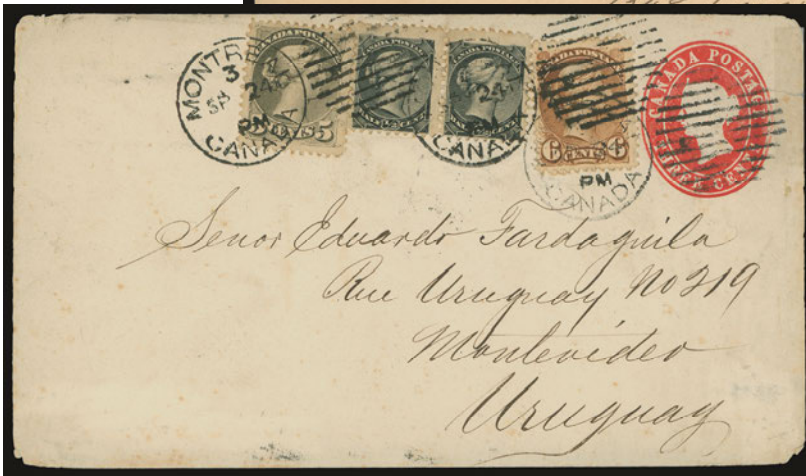 MONTREAL
3
24
PM
CANADA
CANADA POSTAGE
CENTS 5
CANADA POSTAGE
CANADA POSTAGE
24
PM
CANADA
6 CENTS 6
PM
CANADA
CANADA POSTAGE
THREE CENTS
Senor Eduardo Fardaguila
Rue Uruguay No 219
Montevideo
Uruguay